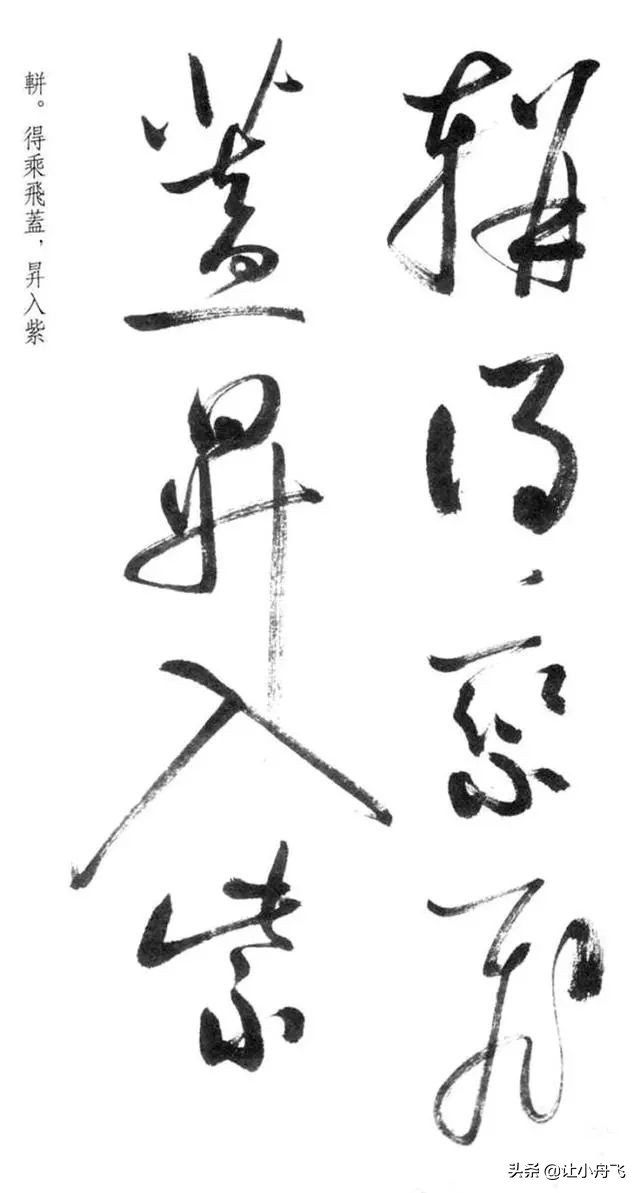 軿得乘飛
蓋昇入紫
軿。得乘飛蓋,昇入紫
头条 @让小舟飞